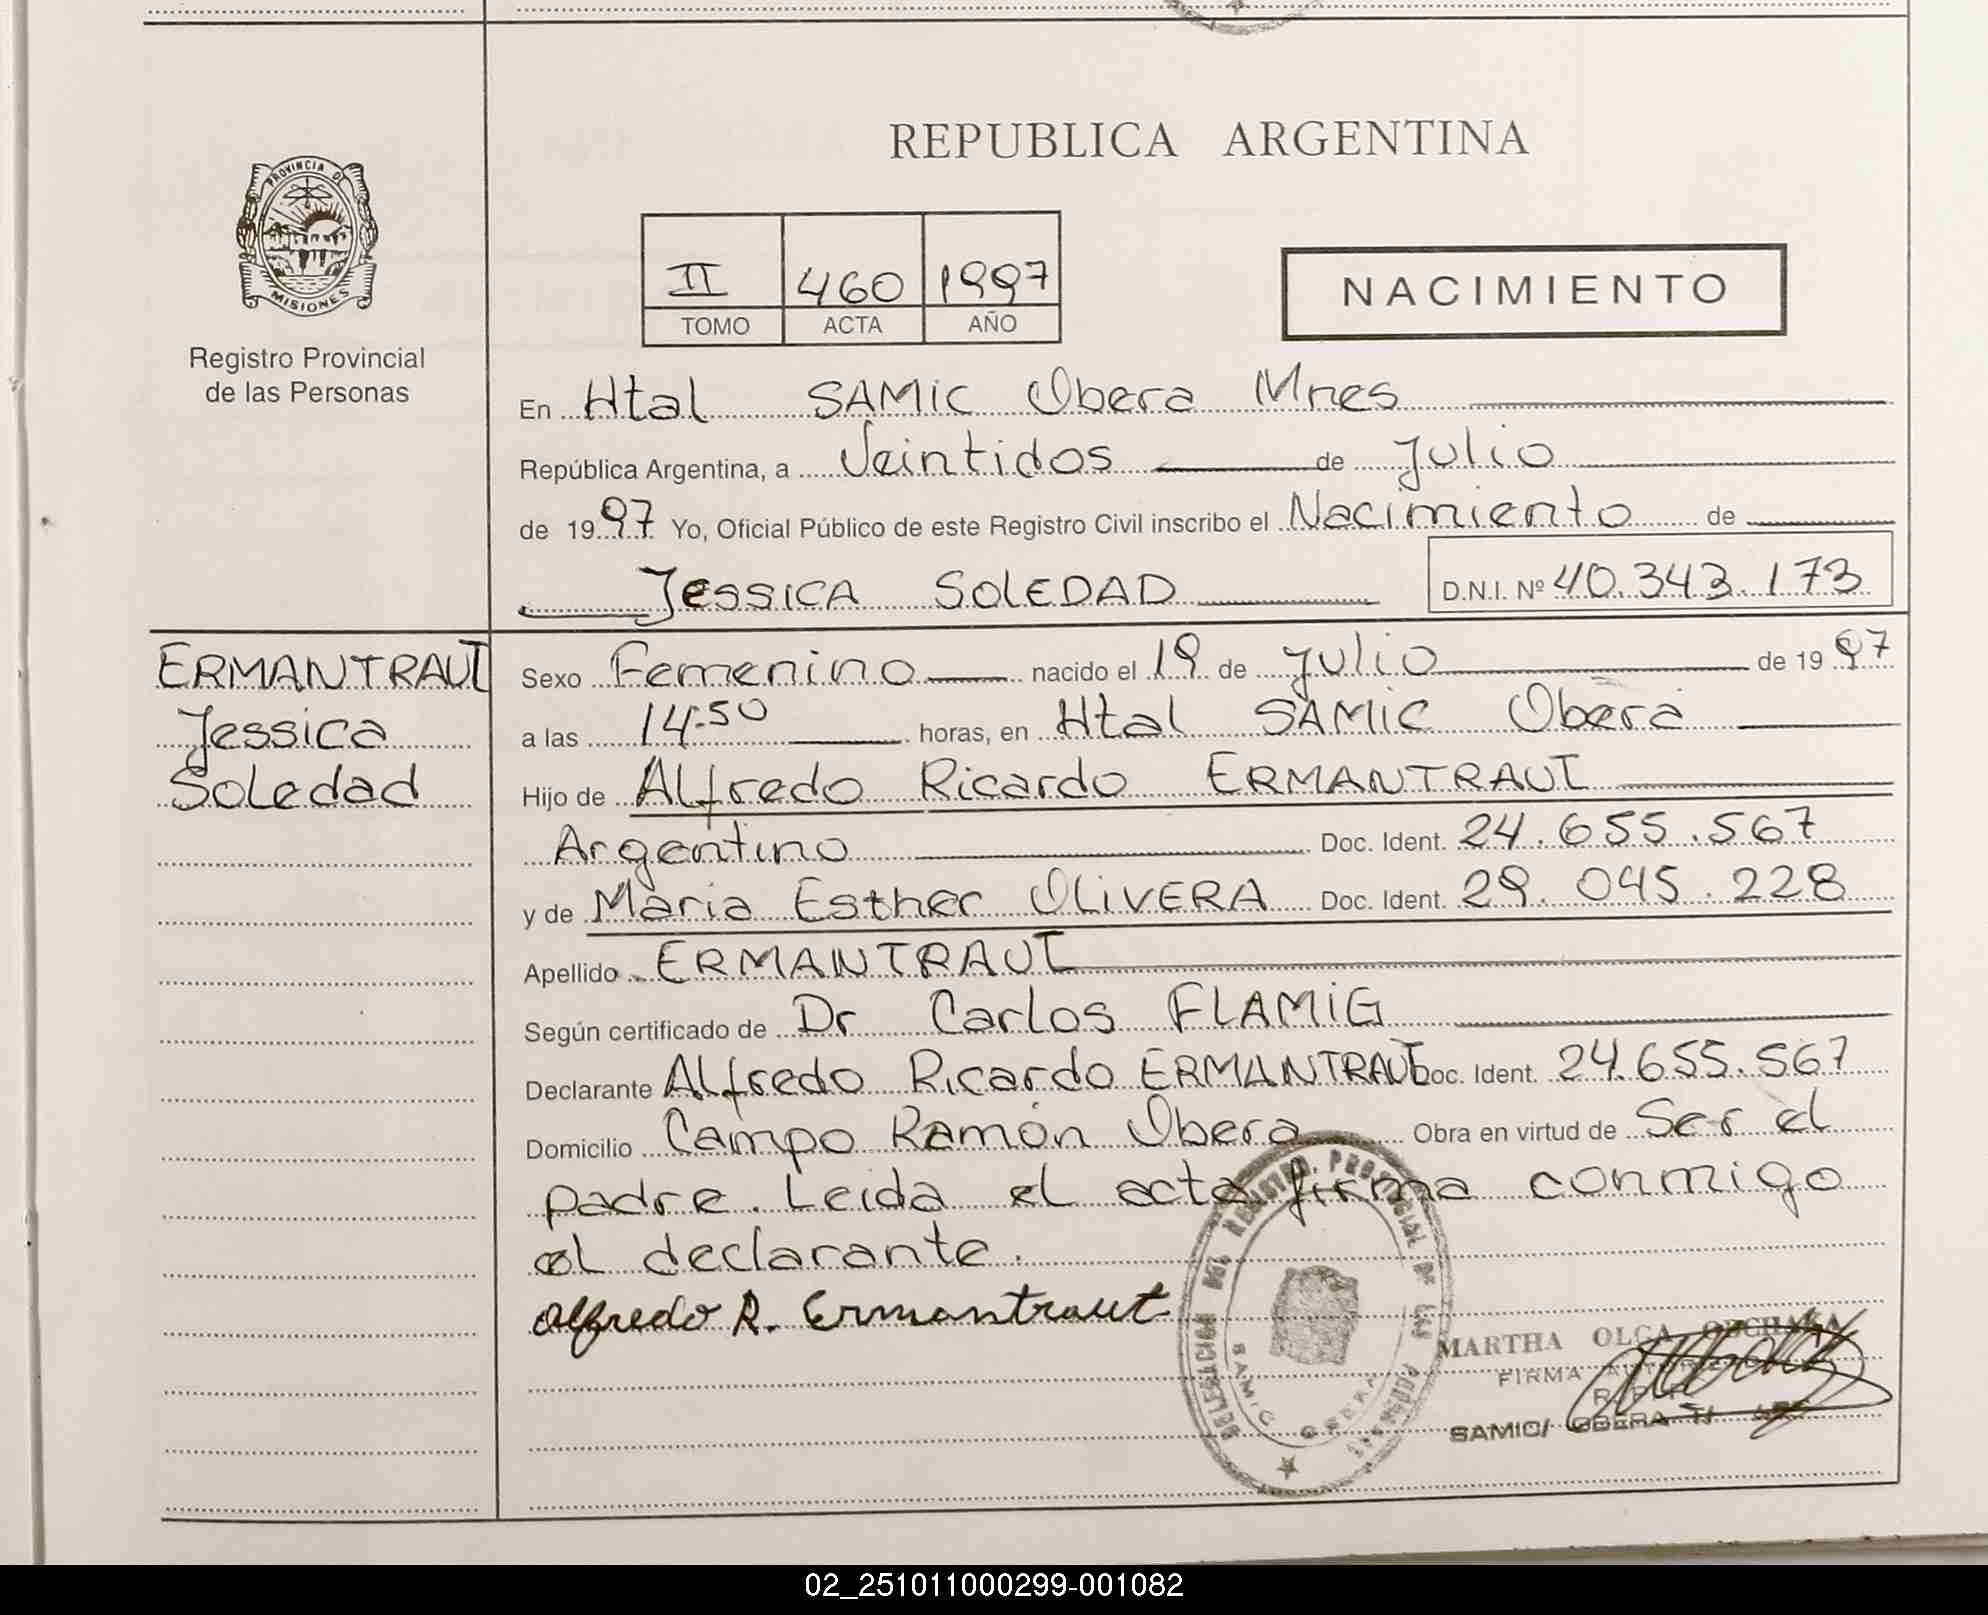 REPUBLICA ARGENTINA
PROVINCIA DE
MISIONES
Registro Provincial
de las Personas
II 460 1997
TOMO ACTA AÑO
NACIMIENTO
En Htal SAMIC Obera Mnes
República Argentina, a Veintidos de Julio
de 1997 Yo, Oficial Público de este Registro Civil inscribo el Nacimiento de
JESSICA SOLEDAD D.N.I. Nº 40.343.173
ERMANTRAUT
Jessica
Soledad
Sexo Femenino nacido el 19 de julio de 1997
a las 14.50 horas, en Htal SAMIC Oberá
Hijo de Alfredo Ricardo ERMANTRAUT
Argentino Doc. Ident. 24.655.567
y de Maria Esther OLIVERA Doc. Ident. 29.045.228
Apellido ERMANTRAUT
Según certificado de Dr Carlos FLAMIG
Declarante Alfredo Ricardo ERMANTRAUT Doc. Ident. 24.655.567
Domicilio Campo Ramón Obera Obra en virtud de Ser el
padre. Leida el acta firma conmigo
el declarante.
Alfredo R. Ermantraut
DELEGACION DEL REGISTRO PROVINCIAL DE LAS PERSONAS
SAMIC OBERA
MARTHA OLGA
FIRMA
SAMIC/ OBERA
02_251011000299-001082